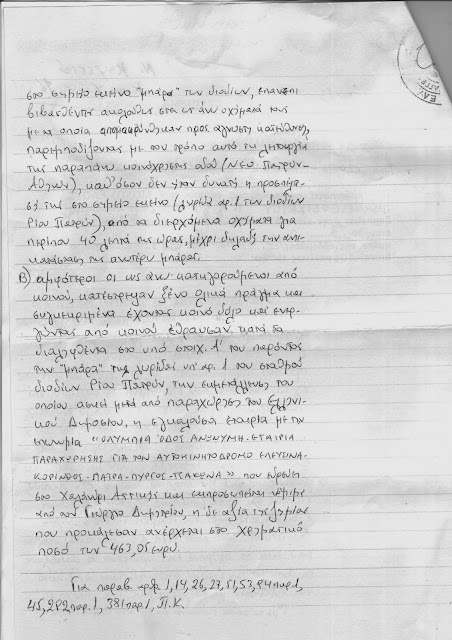 στο σημείο εκείνο "μπάρα" των διοδίων, επανεπι
βιβασθέντες ακολούθως στα ως άνω οχήματά τους
με τα οποία απομακρύνθηκαν προς άγνωστη κατεύθυνση,
παρεμποδίζοντας με τον τρόπο αυτό τη λειτουργία
της παραπάνω κοινόχρηστης οδού (ΝΕΟ Πατρών-
Αθηνών), καθόσον δεν ήταν δυνατή η προσπέλα-
σή της στο σημείο εκείνο (λωρίδα αρ. 1 των διοδίων
Ρίου Πατρών), από τα διερχόμενα οχήματα για
περίπου 40 λεπτά της ώρας, μέχρι δηλαδή την αντι-
κατάσταση της ανωτέρω μπάρας.
Β) αμφότεροι οι ως άνω κατηγορούμενοι από
κοινού, κατέστρεψαν ξένο ολικά πράγμα και
συγκεκριμένα έχοντας κοινό δόλο και ενερ-
γώντας από κοινού έθραυσαν κατά τα
διαληφθέντα στο υπό στοιχ. Α' του παρόντος
την "μπάρα" της λωρίδας υπ' αρ. 1 του σταθμού
διοδίων Ρίου Πατρών, την εκμετάλλευση του
οποίου ασκεί μετά από παραχώρηση του Ελληνι-
κού Δημοσίου, η εγκαλούσα εταιρία με την
επωνυμία «ΟΛΥΜΠΙΑ ΟΔΟΣ ΑΝΩΝΥΜΗ-ΕΤΑΙΡΙΑ
ΠΑΡΑΧΩΡΗΣΗΣ ΓΙΑ ΤΟΝ ΑΥΤΟΚΙΝΗΤΟΔΡΟΜΟ ΕΛΕΥΣΙΝΑ-
ΚΟΡΙΝΘΟΣ-ΠΑΤΡΑ-ΠΥΡΓΟΣ-ΤΣΑΚΩΝΑ» που εδρεύει
στο Χαλάνδρι Αττικής και εκπροσωπείται νόμιμα
από τον Γεώργιο Δημητρίου, η δε αξία της ζημίας
που προκάλεσαν ανέρχεται στο χρηματικό
ποσό των 463,05 ευρώ.
Για παραβ. αρθρ. 1, 14, 26, 27, 51, 53, 94 παρ. 1,
45, 292 παρ. 1, 381 παρ. 1, Π.Κ.